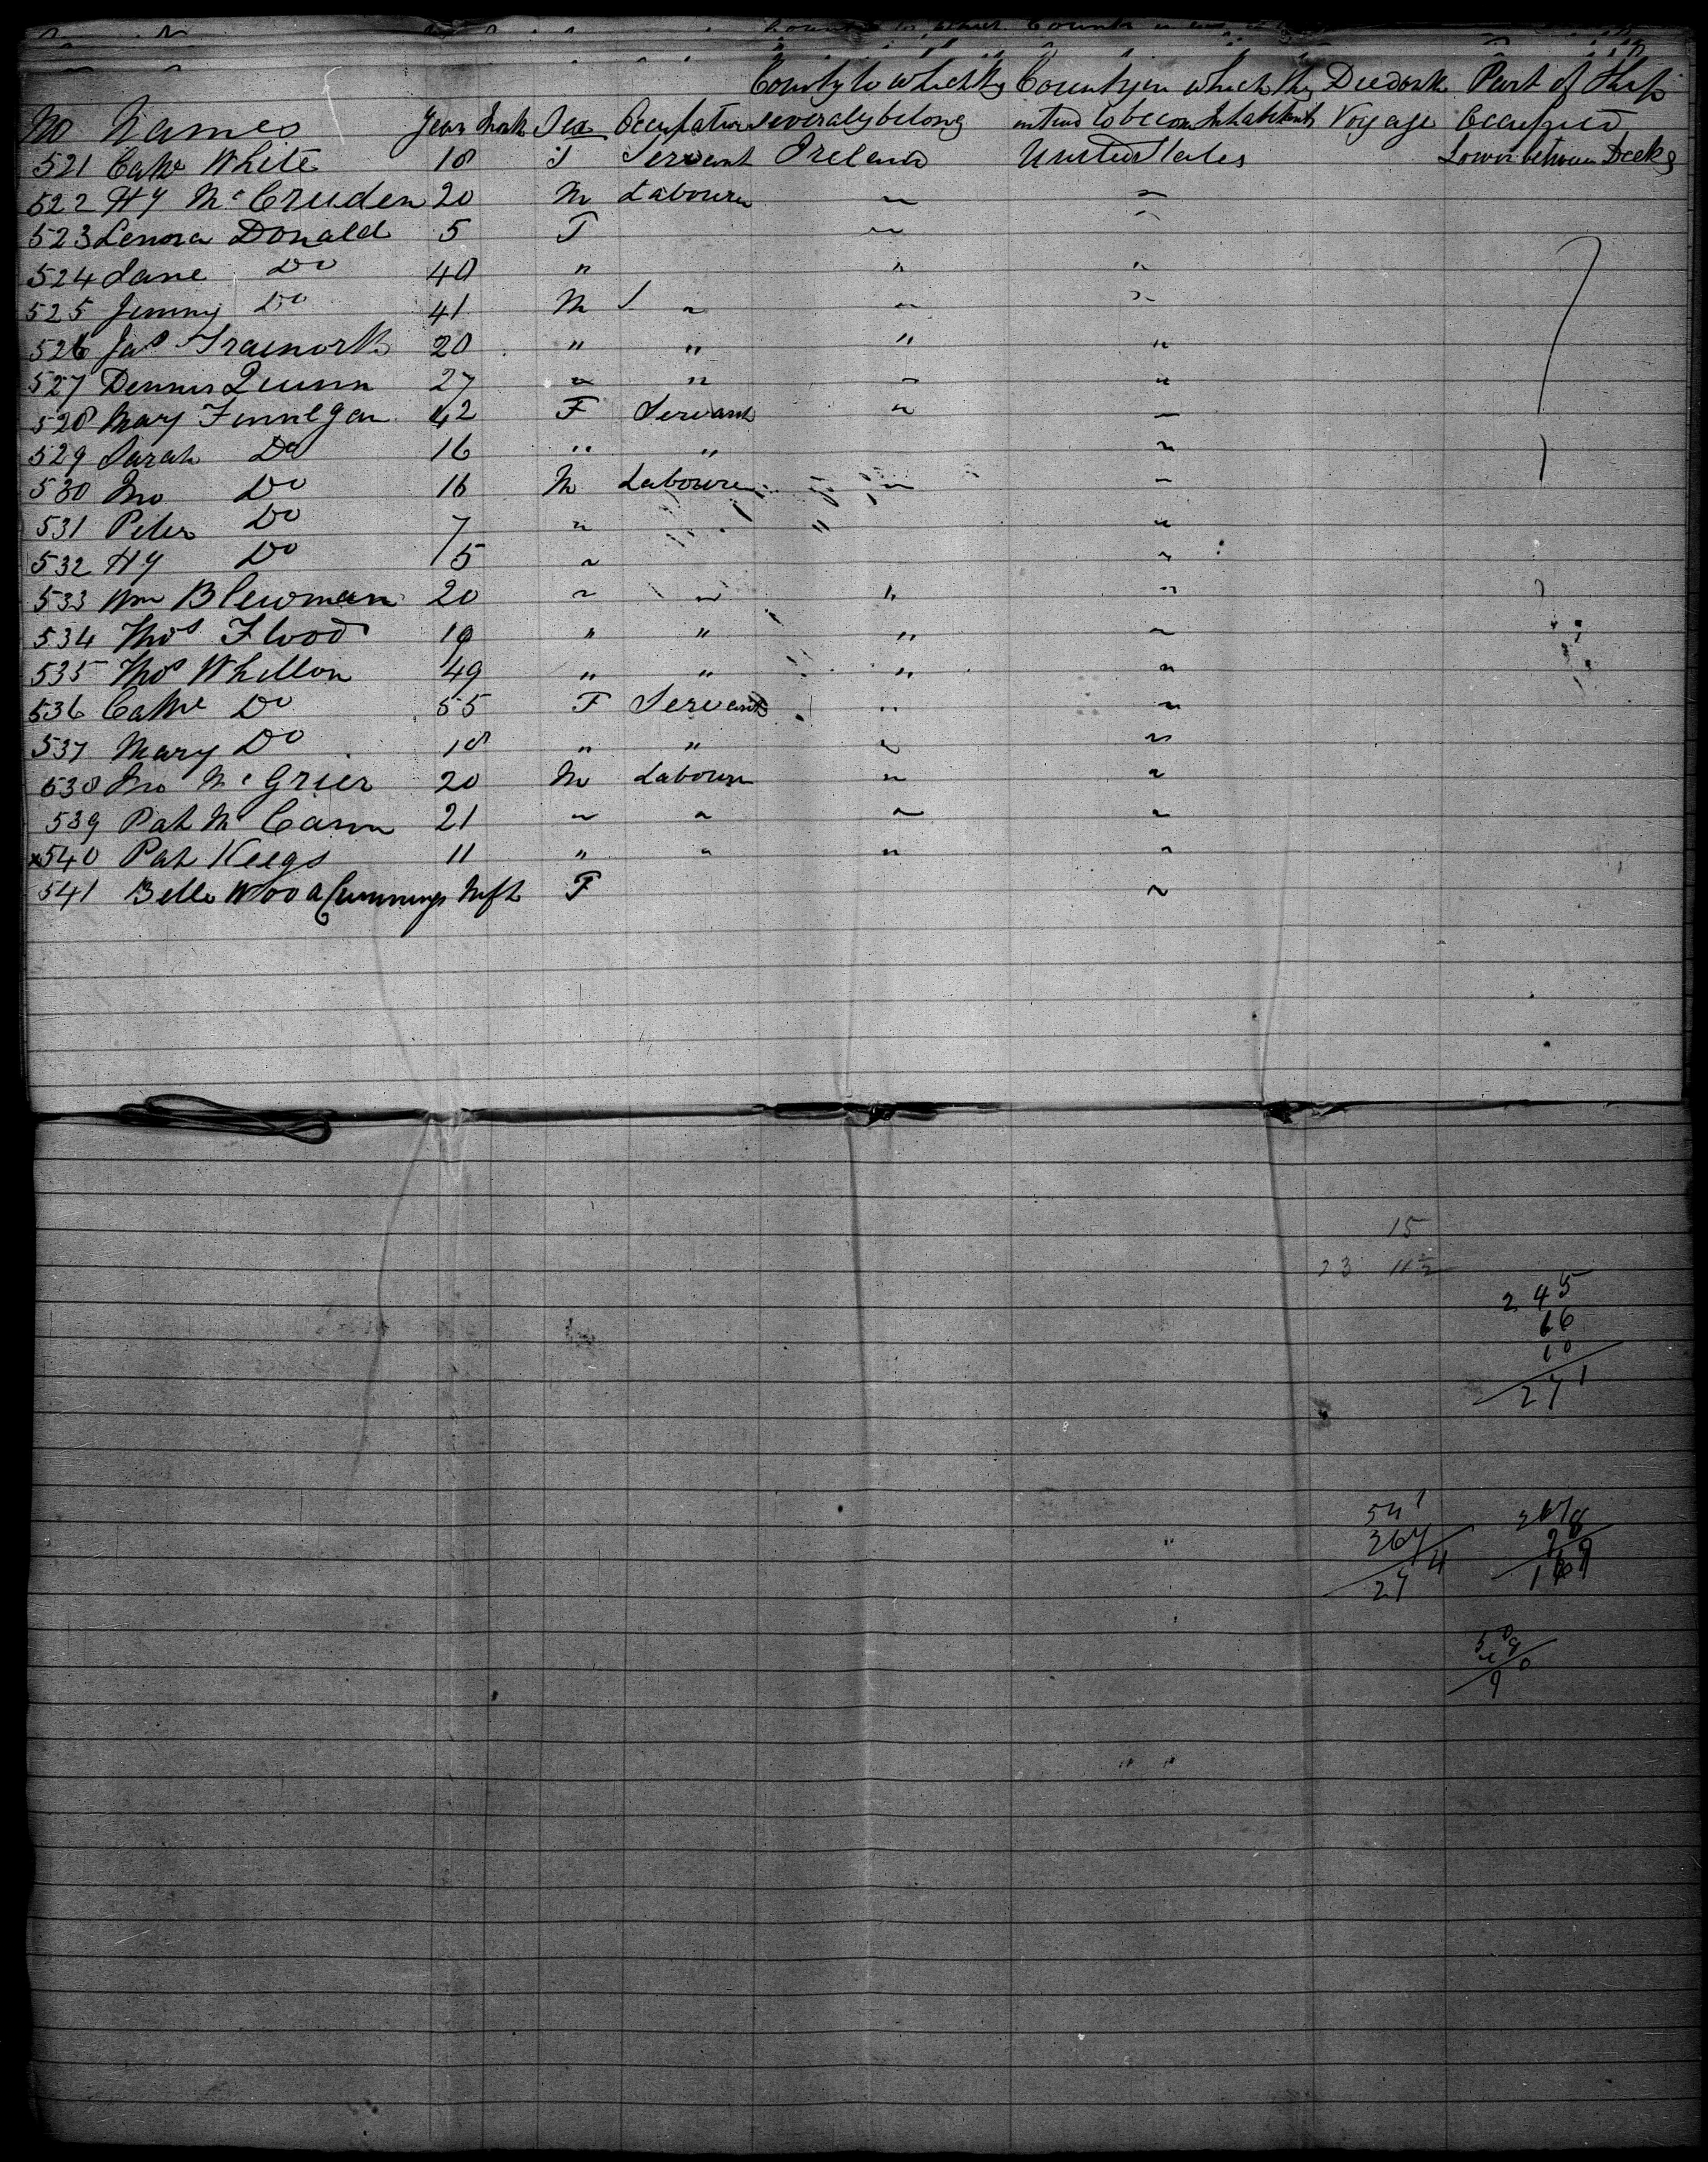 County to which they Country in which they Died on the Part of Ship
No Names Years Month Sex Occupation severaly belong intend to become Inhabitants Voyage Occupied
521 Cathe White 18 F Servant Ireland United States Lower between Decks
522 Hy McCruden 20 M Labourer " "
523 Lenora Donald 5 F " "
524 Jane Do 40 " " "
525 Jimmy Do 41 M " " "
526 Jas 20 " " " "
527 Dennis Quinn 27 " " " "
528 Mary Finnegan 42 F Servant " "
529 Sarah Do 16 " " "
530 Jno Do 16 M Labourer " "
531 Peter Do 7 " " "
532 Hy Do 5 " "
533 Wm Blewman 20 " " " "
534 Thos Flood 19 " " " "
535 Thos Whellon 49 " " " "
536 Cathe Do 55 F Servant " "
537 Mary Do 18 " " " "
538 Jno McGrier 20 M Labourer " "
539 Pat McCann 21 " " " "
x540 Pat Keegs 11 " " " "
541 Bella Wood Cummings Inft F "
15
23 11½
245
16
10
271
541
267
274